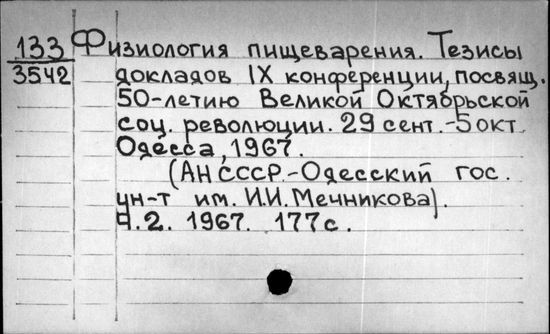 133 Физиология пищеварения. Тезисы
3542 докладов IX конференции, посвящ.
50-летию Великой Октябрьской
соц. революции. 29 сент.-5 окт.
Одесса, 1967.
(АН СССР.-Одесский гос.
ун-т им. И.И. Мечникова).
Ч.2. 1967. 177с.